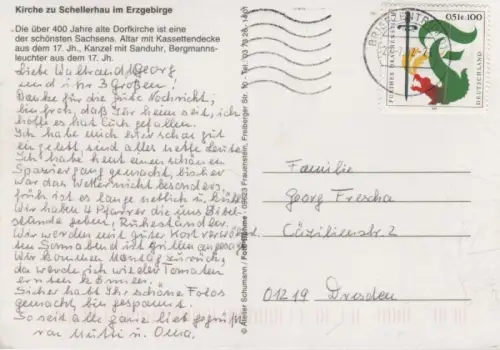 Kirche zu Schellerhau im Erzgebirge
Die über 400 Jahre alte Dorfkirche ist eine
der schönsten Sachsens. Altar mit Kassettendecke
aus dem 17. Jh., Kanzel mit Sanduhr, Bergmanns-
leuchter aus dem 17. Jh.
Liebe Waltraud, Georg
und ihr 3 Großen!
Danke für die gute Nachricht,
bin froh, daß Ihr heim seit, ich
hoffe es hat Euch gefallen.
Ich habe mich hier schon gut
ein gelebt, sind alles nette Leute.
Ich habe heut einen schönen
Spaziergang gemacht, bisher
war das Wetter nicht besonders,
früh ist es lange neblich u. kühl
Wir haben 4 Pfarrer die uns Bibel-
stunde geben, Ruheständler.
Wir werden mit guter Kost verwöhnt
am Sonnabend ist Grillen angesagt.
Wir kommen Montag zurück,
da werde ich wieder Tomaten
ernten können.
Sicher habt Ihr schöne Fotos
gemacht, bin gespannt.
So seit alle ganz lieb gegrüßt
von Mutti u. Oma.
© Atelier Schumann / Foto 09623 Frauenstein, Freiberger Str. 10
BRIEFZENTRUM
0,51€ 100
DEUTSCHLAND
Familie
Georg Frescha
Cäzilienstr. 2
01219 Dresden